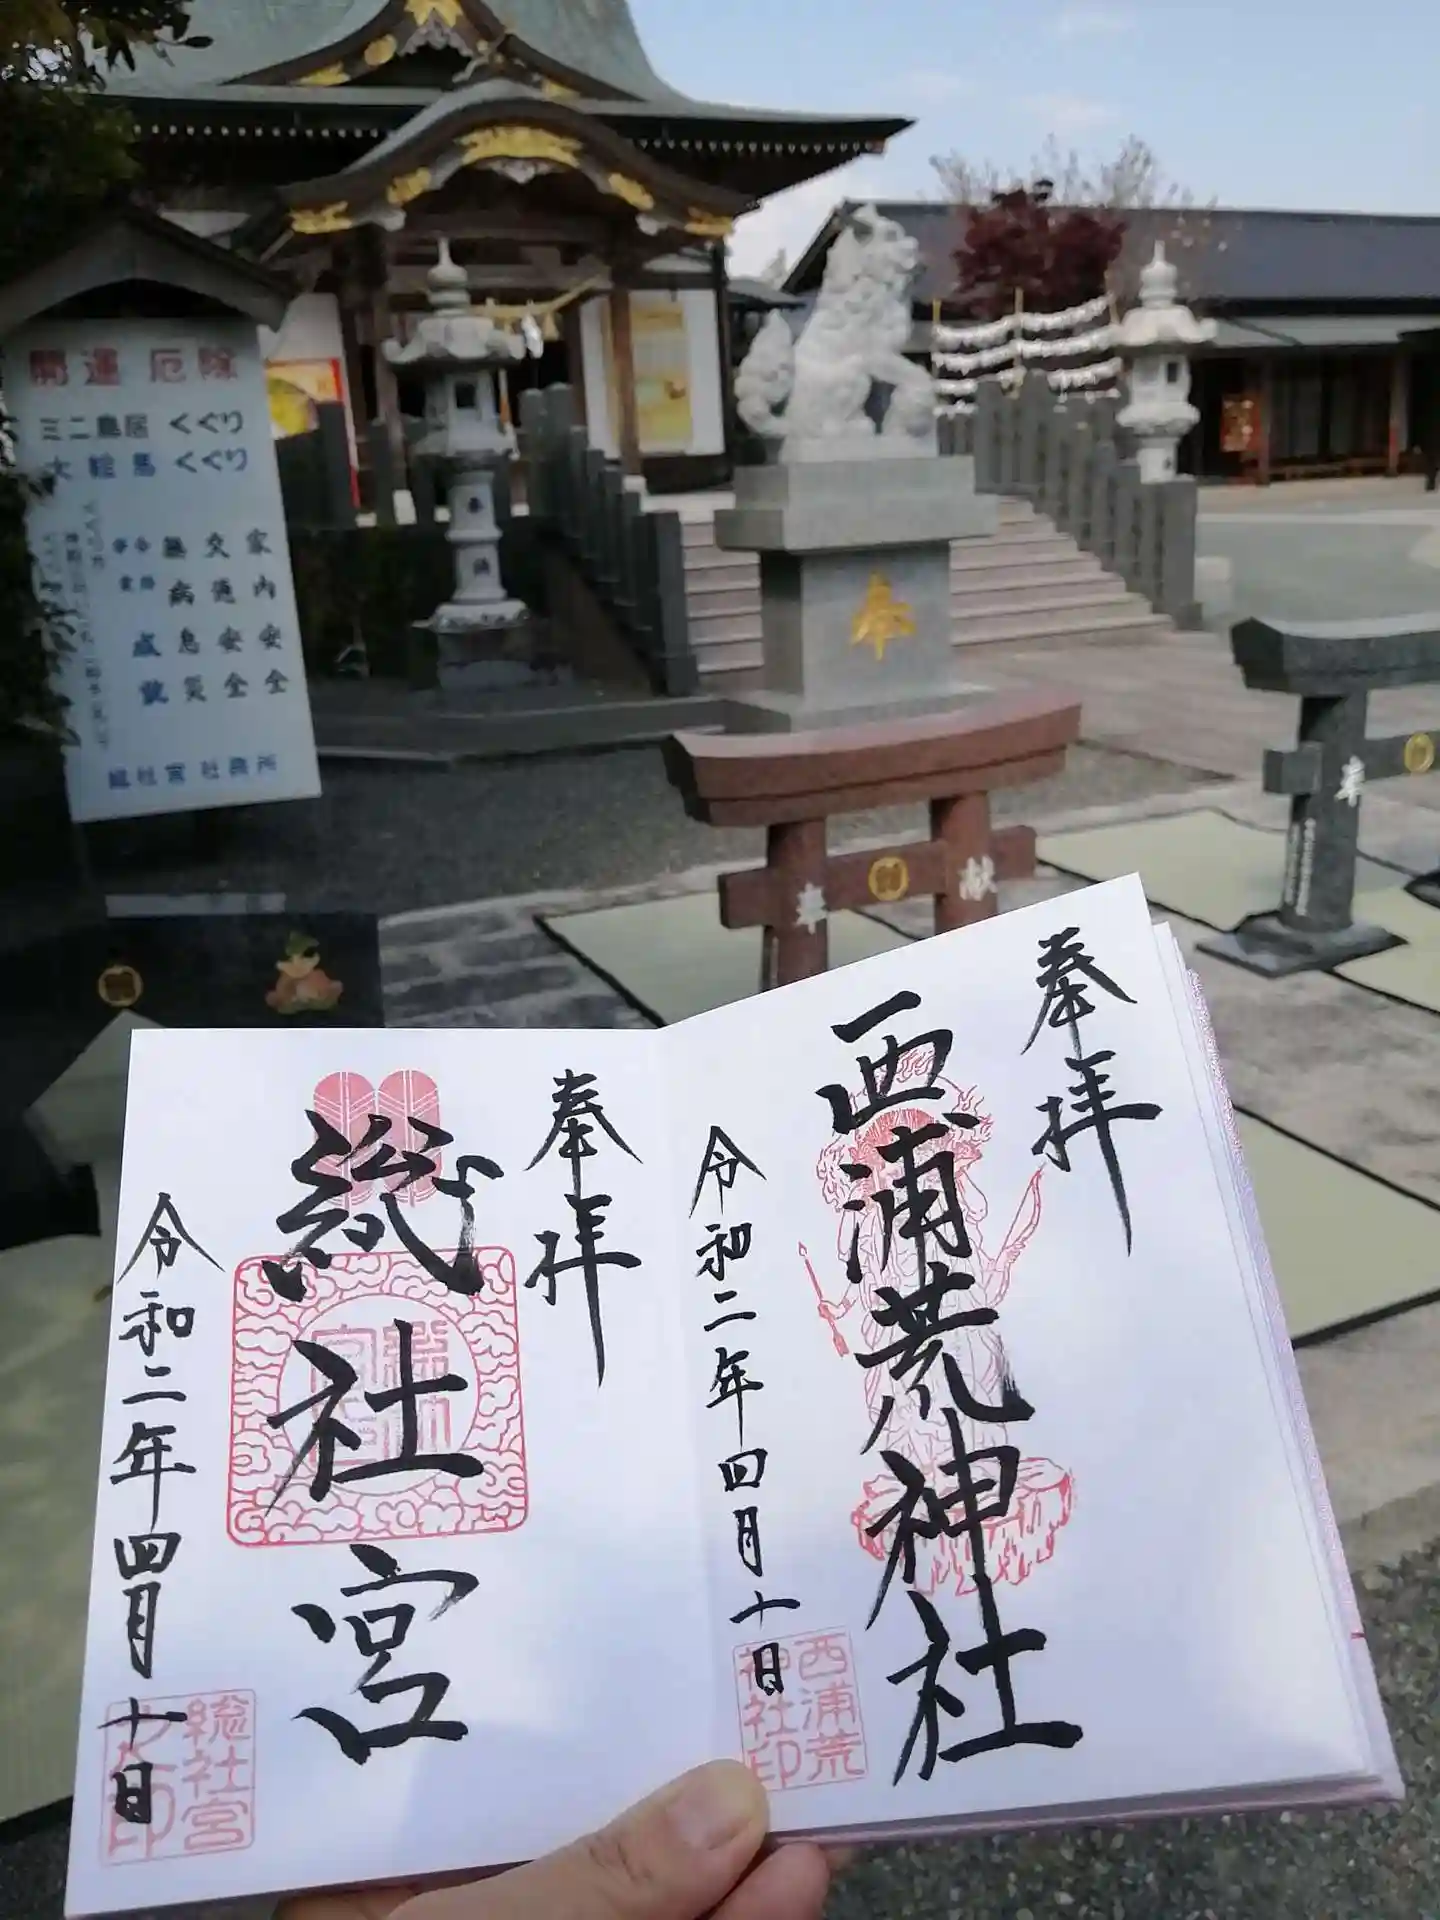 開運 厄除
ミニ鳥居 くぐり
大絵馬 くぐり
家内安全
交通安全
無病息災
成就
総社宮 社務所
奉
奉 献
奉
奉拝
西浦荒神社
令和二年四月十日
西浦荒
神社印
奉拝
総社宮
令和二年四月十日
総社宮